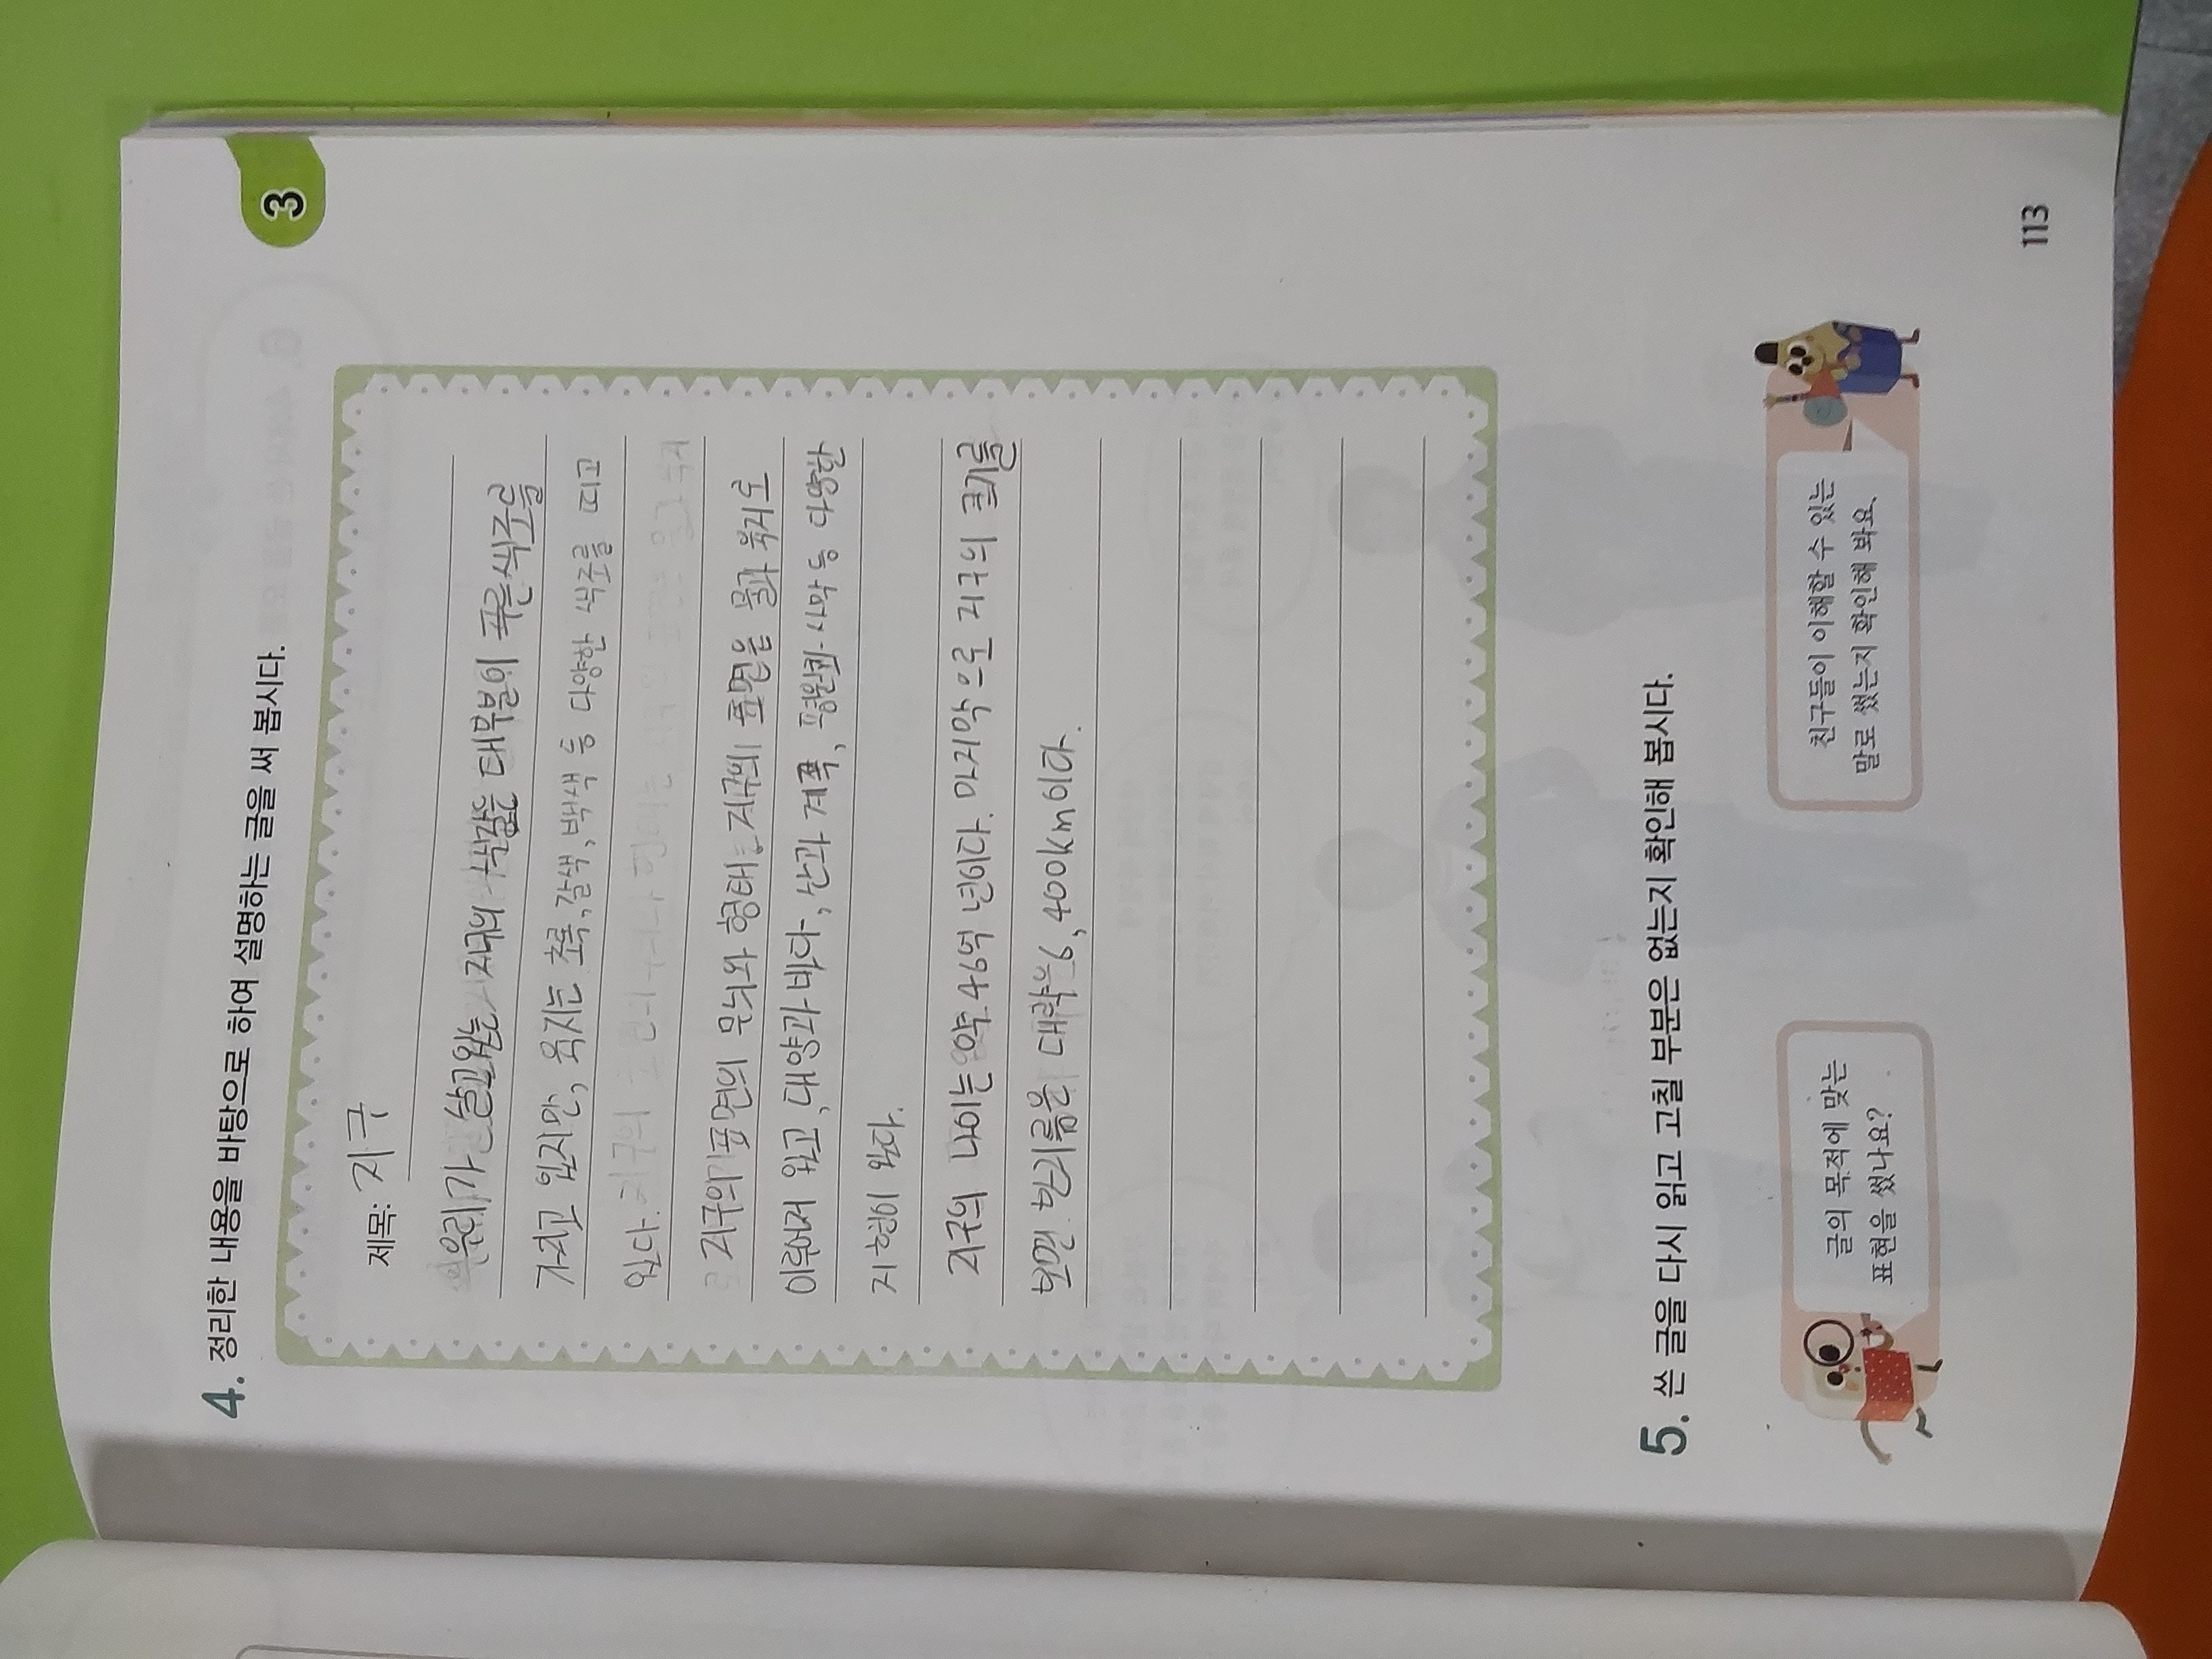 3
4. 정리한 내용을 바탕으로 하여 설명하는 글을 써 봅시다.
제목: 지구
우리가 살고있는 지구의 색깔은 대부분이 푸른색조를
가지고 있지만, 육지는 초록, 갈색, 백색 등 다양한 색조를 띠고
있다.
지구의 표면의 무늬와 형태는 지구의 표면을 물과 육지로
이루어져 있고, 대양과 바다, 산과 계곡, 평원과 사막 등 다양한
지형이 있다.
지구의 나이는 약 46억 년이다. 마지막으로 지구의 크기를
보면 반지름은 대략 6,400km이다.
5. 쓴 글을 다시 읽고 고칠 부분은 없는지 확인해 봅시다.
글의 목적에 맞는
표현을 썼나요?
친구들이 이해할 수 있는
말로 썼는지 확인해 봐요.
113